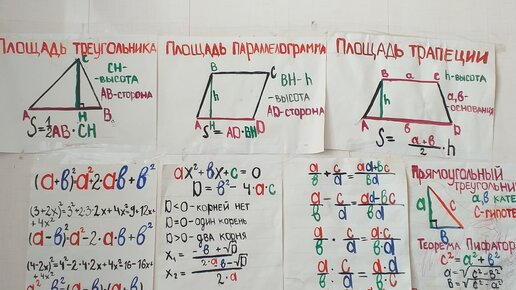 Площадь треугольника
C
CH-
-высота
AB-сторона
A
H
B
S=½AB·CH
Площадь парамелограмма
B
C
h
BH-h
-высота
AD-сторона
A
H
D
S=AD·BH
Площадь трапеции
B
a
C
h
h-высота
a,b-
основания
A
b
D
S= (a+b)/2 · h
(a+b)²=a²+2·a·b+b²
(3+2x)²=3²+2·3·2x+4x²=9+12x+
+4x²
(a-b)²=a²-2·a·b+b²
(4-2x)²=4²-2·4·2x+4x²=16-16x+
+4x²
ax²+bx+c=0
D=b²-4·a·c
D<0-корней нет
D=0-один корень
D>0-два корня
x₁= (-b+√D)/(2·a)
x₂= (-b-√D)/(2·a)
a/b + c/d = (ad+bc)/bd
a/b - c/d = (ad-bc)/bd
a/b · c/d = a·c/b·d
a/b : c/d = a·d/b·c
Прямоугольный
треугольник
a,b кате
c-гипоте
a
c
b
Теорема Пифагор
c²=a²+b²
a=√c²-b²
b=√c²-a²